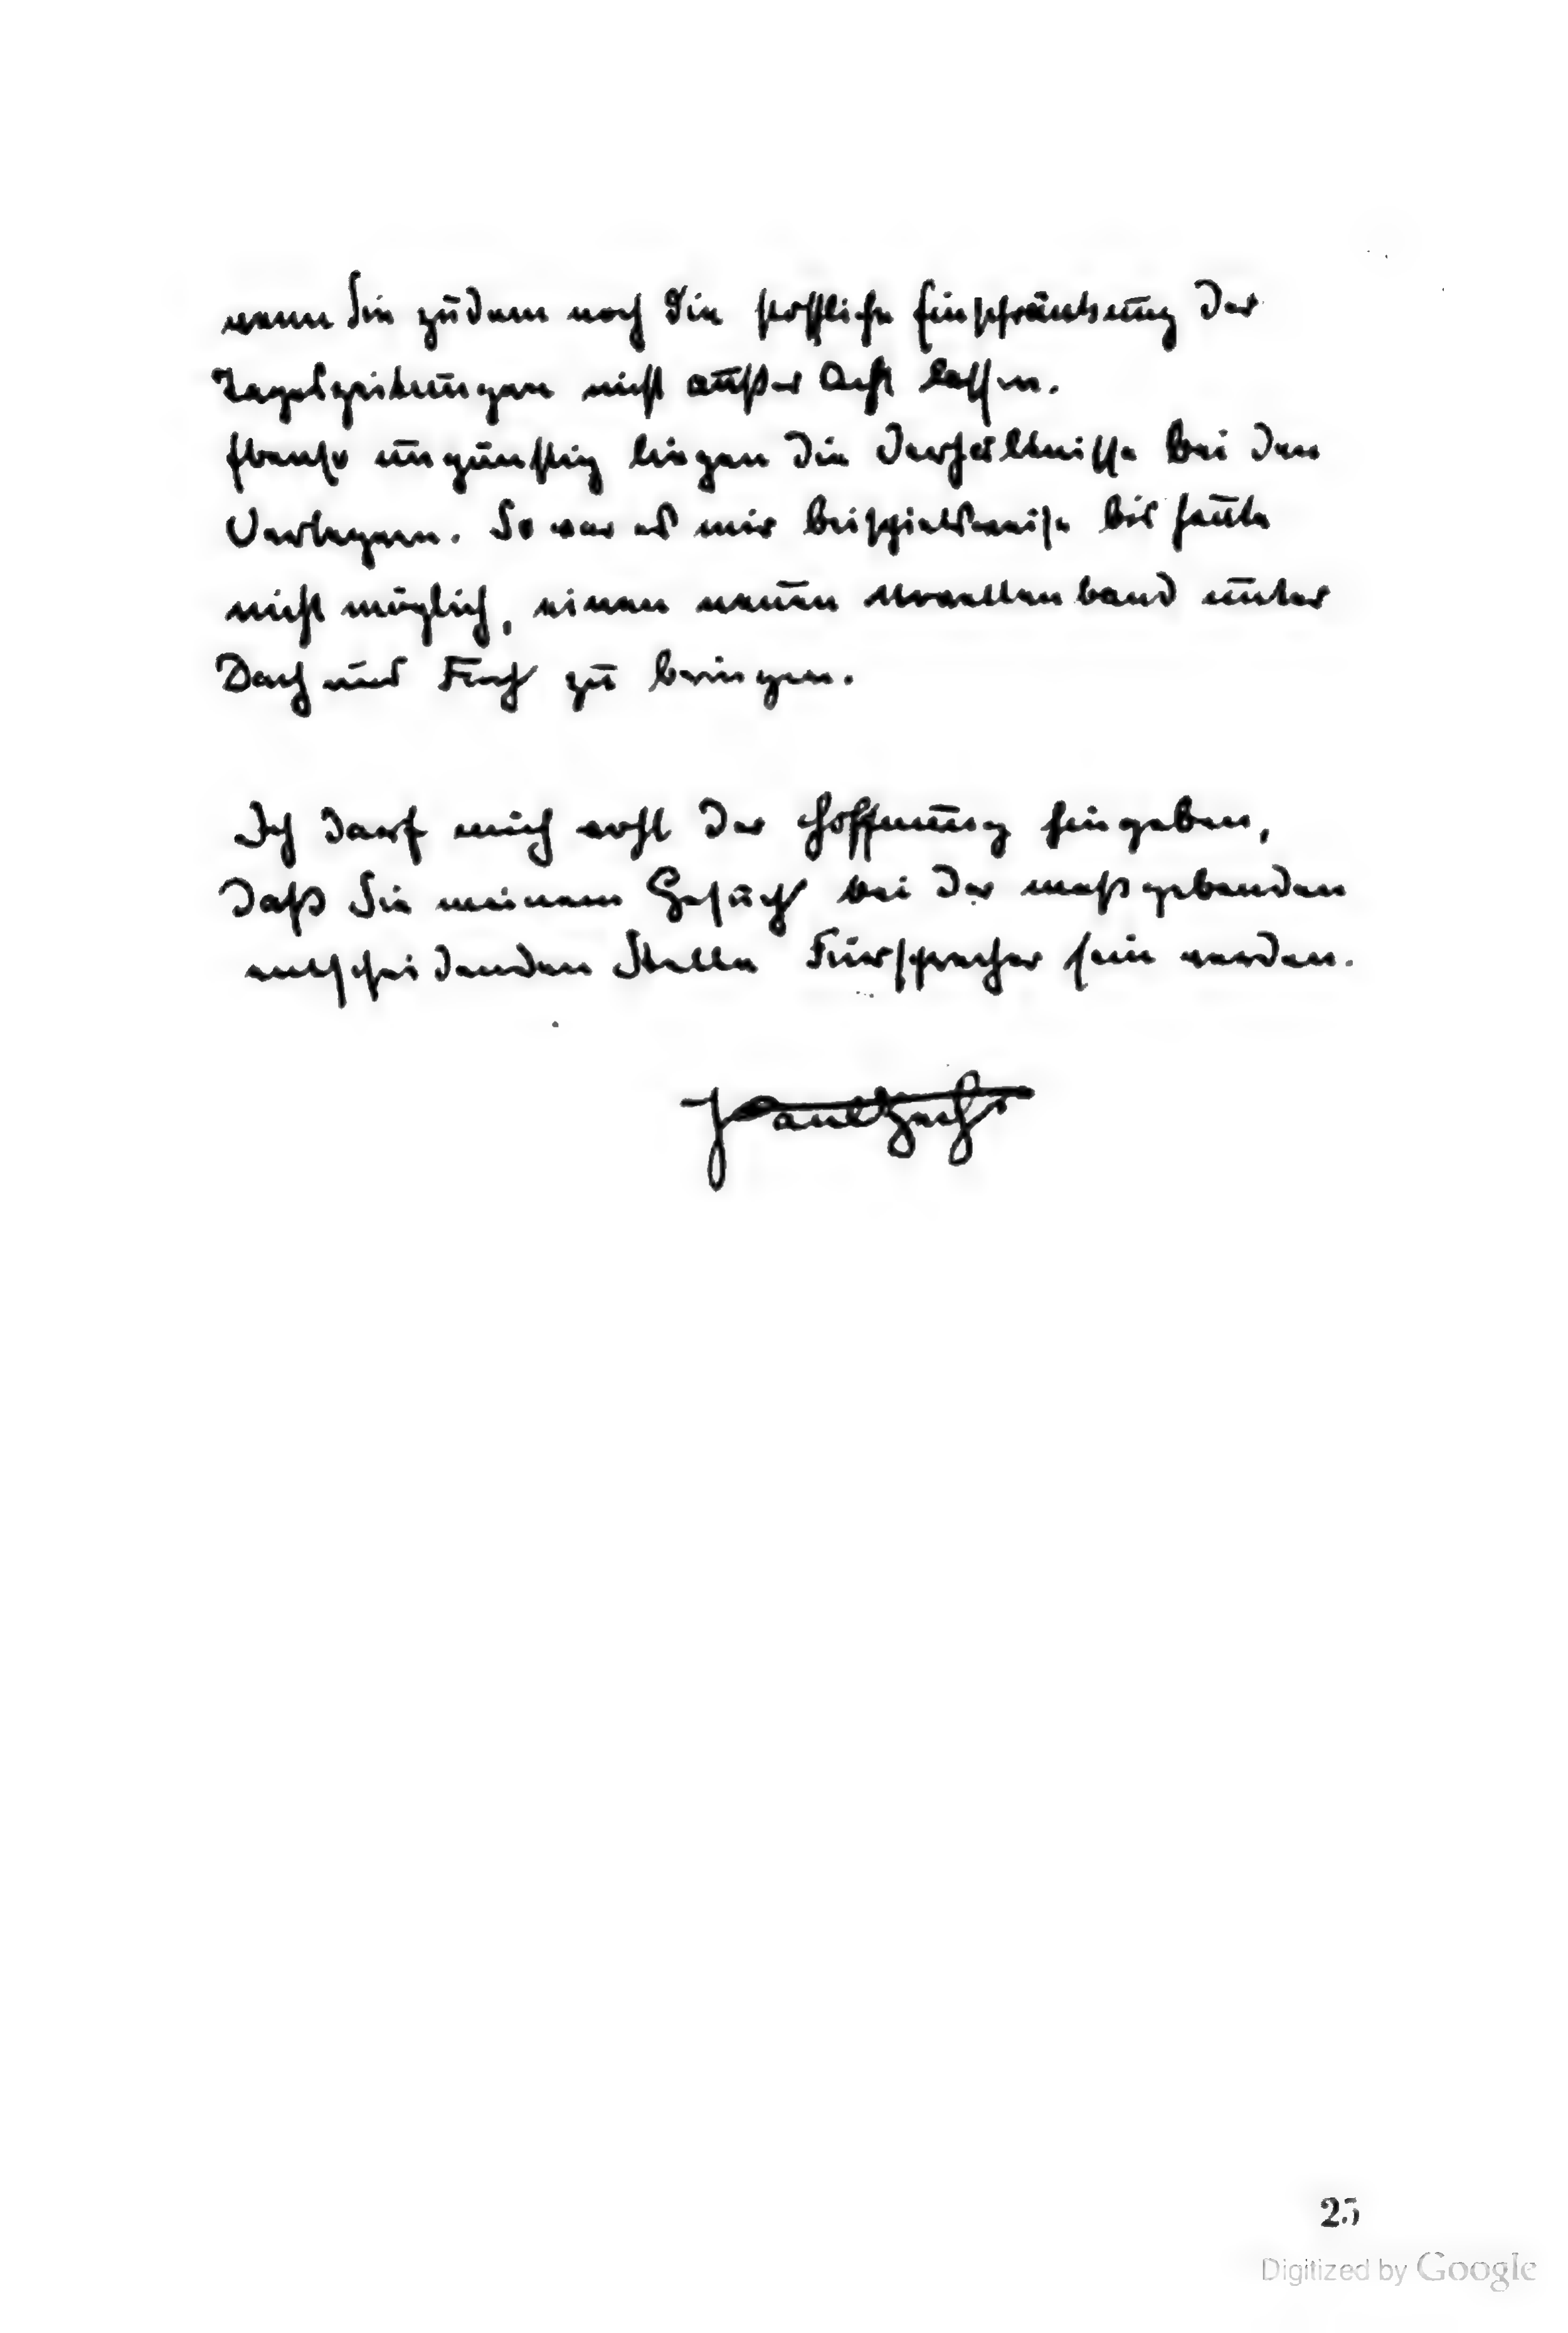 wenn Sie zudem noch die stoffliche Einschränkung der
Tageszeitungen nicht außer Acht lassen.
Ebenso ungünstig liegen die Verhältnisse bei den
Verlegern. So war es mir beispielsweise bis heute
nicht möglich, einen neuen Novellenband unter
Dach und Fach zu bringen.
Ich darf mich wohl der Hoffnung hingeben,
daß Sie meinem Gesuch bei der maßgebenden
entscheidenden Stelle Fürsprecher sein werden.
Paul Zech
25
Digitized by Google